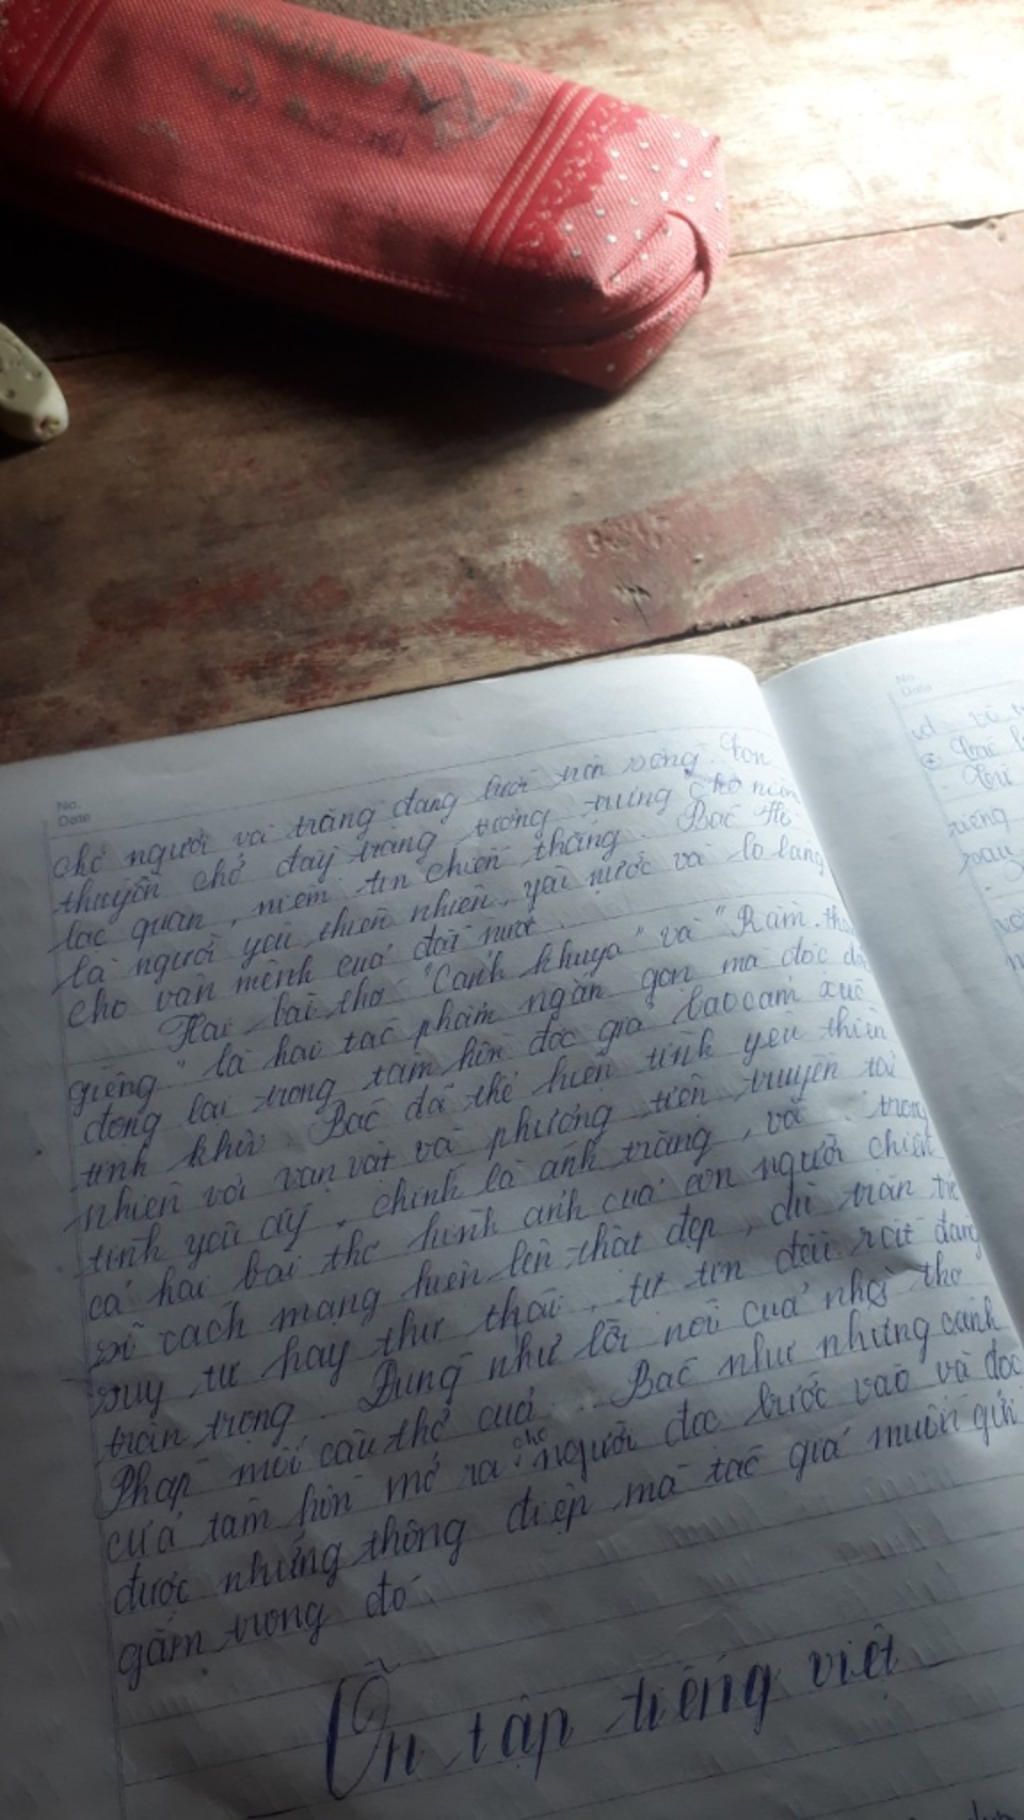 No.
Date
chở người và trăng đang lướt trên sông. Con
thuyền chở đầy trăng tượng trưng cho niềm
lạc quan, niềm tin chiến thắng. Bác Hồ
là người yêu thiên nhiên, yêu nước và lo lắng
cho vận mệnh của đất nước.
Hai bài thơ "Cảnh khuya" và "Rằm tháng
giêng" là hai tác phẩm ngắn gọn mà độc đáo
đọng lại trong tâm hồn độc giả bao cảm xúc
tinh khôi. Bác đã thể hiện tình yêu thiên
nhiên với vạn vật và phương tiện truyền tải
tình yêu ấy, chính là ánh trăng, và trong
cả hai bài thơ hình ảnh của con người chiến
sĩ cách mạng hiện lên thật đẹp, dù trăn trở
suy tư hay thư thái, tự tin đều rất đáng
trân trọng. Đúng như lời nói của nhà thơ
Pháp mỗi câu thơ của Bác như những cánh
cửa tâm hồn mở ra cho người đọc bước vào và đọc
được những thông điệp mà tác giả muốn gửi
gắm trong đó
Ôn tập tiếng việt
No.
Date